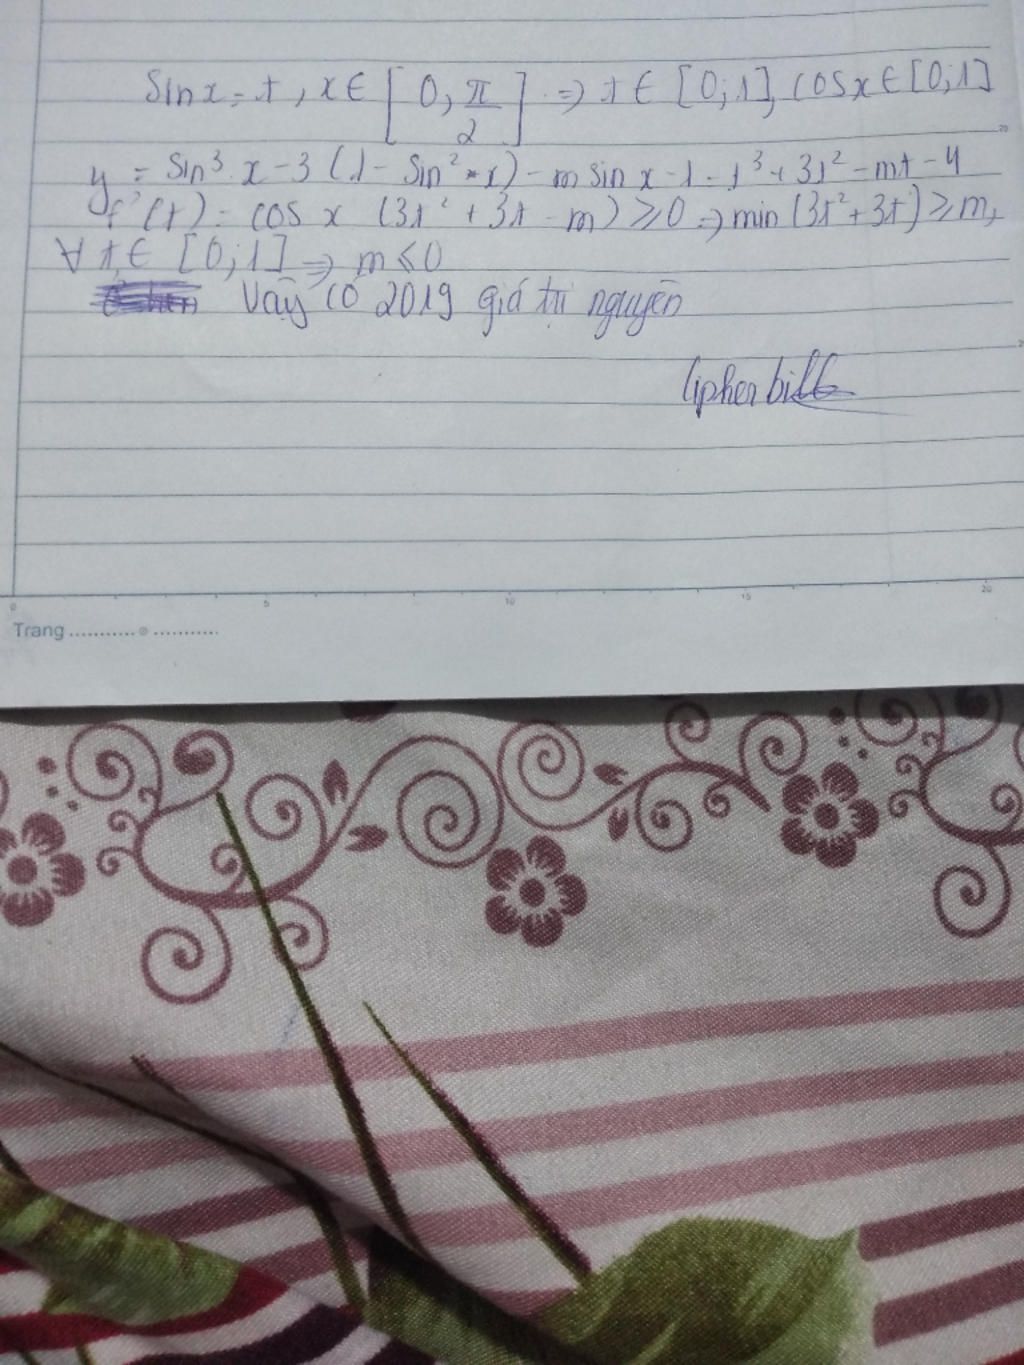 Sin x = t, x ∈ [0, π/2] => t ∈ [0;1], cosx ∈ [0;1]
y = sin³ x - 3 (1 - sin² x) - m sin x - 1 = t³ + 3t² - mt - 4
f'(t) = cos x (3t² + 3t - m) ≥ 0 => min (3t² + 3t) ≥ m,
∀ t ∈ [0;1] => m ≤ 0
Vậy có 2019 giá trị nguyên
Cipher bill
20
0 5 10 15 20
Trang